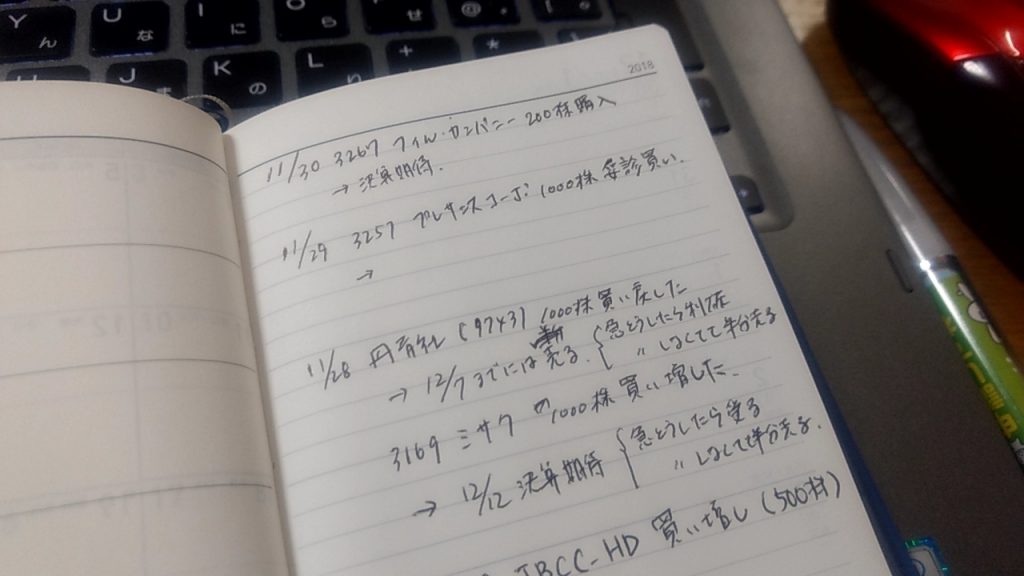 Y ん
U な
I に
O ら
P せ
@
J ま
K の
L り
+
*
2018
11/30 3267 フィル・カンパニー 200株購入
→ 決算期待.
11/29 3257 プレサンスコーポ 1000株 打診買い.
→
11/28 丹青社 (9743) 1000株 買い戻した
→ 12/7までには売る. { 急どうしたら利確
〃 しなくても半分売る
3169 ミサワ 1000株 買い増した.
→ 12/12 決算期待 { 急どうしたら売る
〃 しなくても半分売る.
JBCC-HD 買い増し (500株)